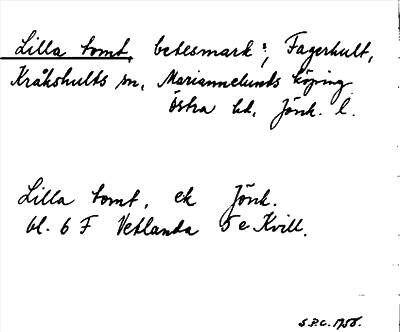 Lilla tomt, betesmark i, Fagerhult,
Kråkshults sn, Mariannelunds köping
Östra hd, Jönk. l.
Lilla tomt, ek Jönk.
bl. 6 F Vetlanda 5 e Kvill.
S.P.C. 1958.